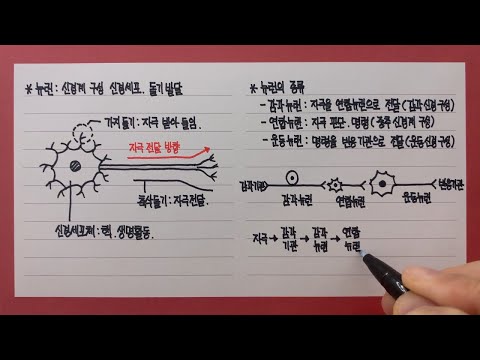 * 뉴런 : 신경계 구성 신경세포. 돌기 발달
가지돌기 : 자극 받아 들임.
자극 전달 방향
축삭돌기 : 자극전달.
신경세포체 : 핵. 생명활동.
* 뉴런의 종류
- 감각 뉴런 : 자극을 연합뉴런으로 전달 (감각신경구성)
- 연합뉴런 : 자극 판단. 명령 (중추 신경계 구성)
- 운동뉴런 : 명령을 반응기관으로 전달 (운동신경구성)
감각기관
반응기관
감각뉴런
연합뉴런
운동뉴런
자극 → 감각 기관 → 감각 뉴런 → 연합 뉴런